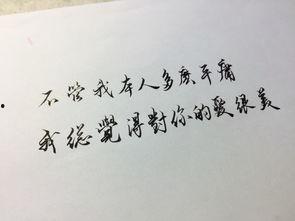 不管我本人多庶平庸
我總覺得對你的愛很美